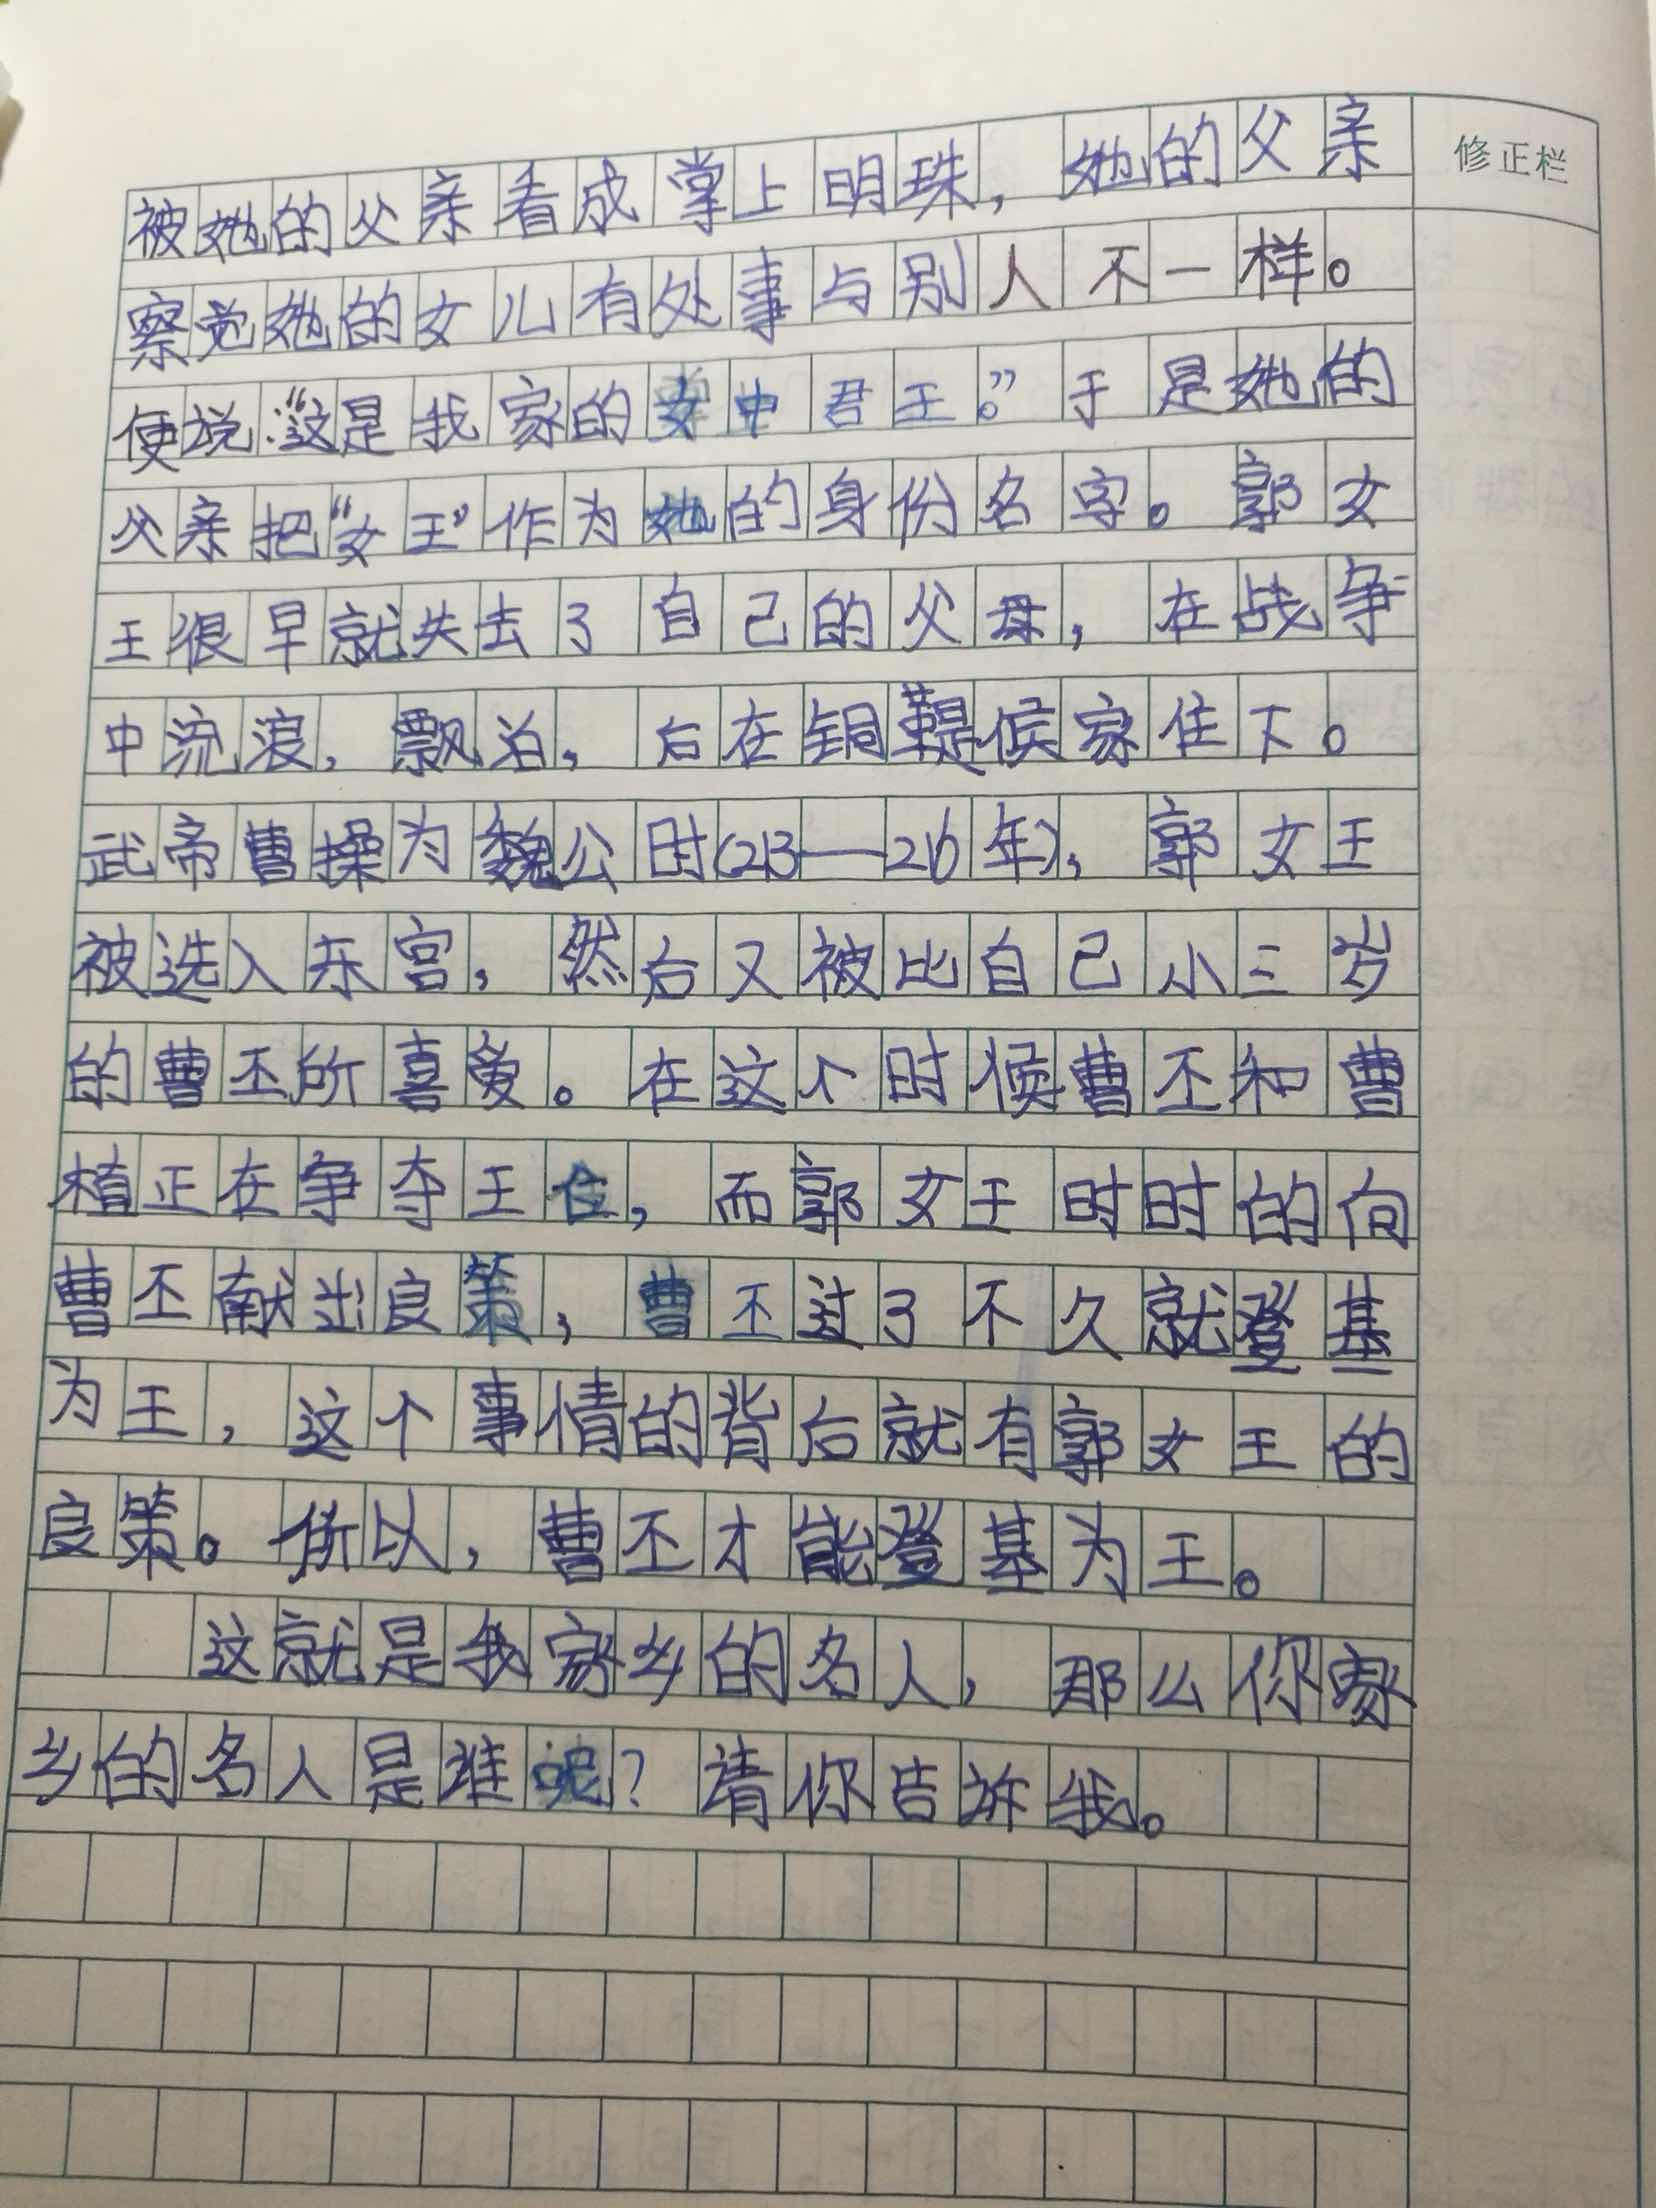 修正栏
被她的父亲看成掌上明珠，她的父亲
察觉她的女儿有处事与别人不一样。
便说：“这是我家的女中君王。”于是她的
父亲把“女王”作为她的身份名字。郭女
王很早就失去了自己的父母，在战争
中流浪，飘泊，后在铜鞮候家住下。
武帝曹操为魏公时(213——216年)，郭女王
被选入东宫，然后又被比自己小三岁
的曹丕所喜爱。在这个时候曹丕和曹
植正在争夺王位，而郭女王时时的向
曹丕献出良策，曹丕过了不久就登基
为王，这个事情的背后就有郭女王的
良策。所以，曹丕才能登基为王。
这就是我家乡的名人，那么你家
乡的名人是谁呢？请你告诉我。